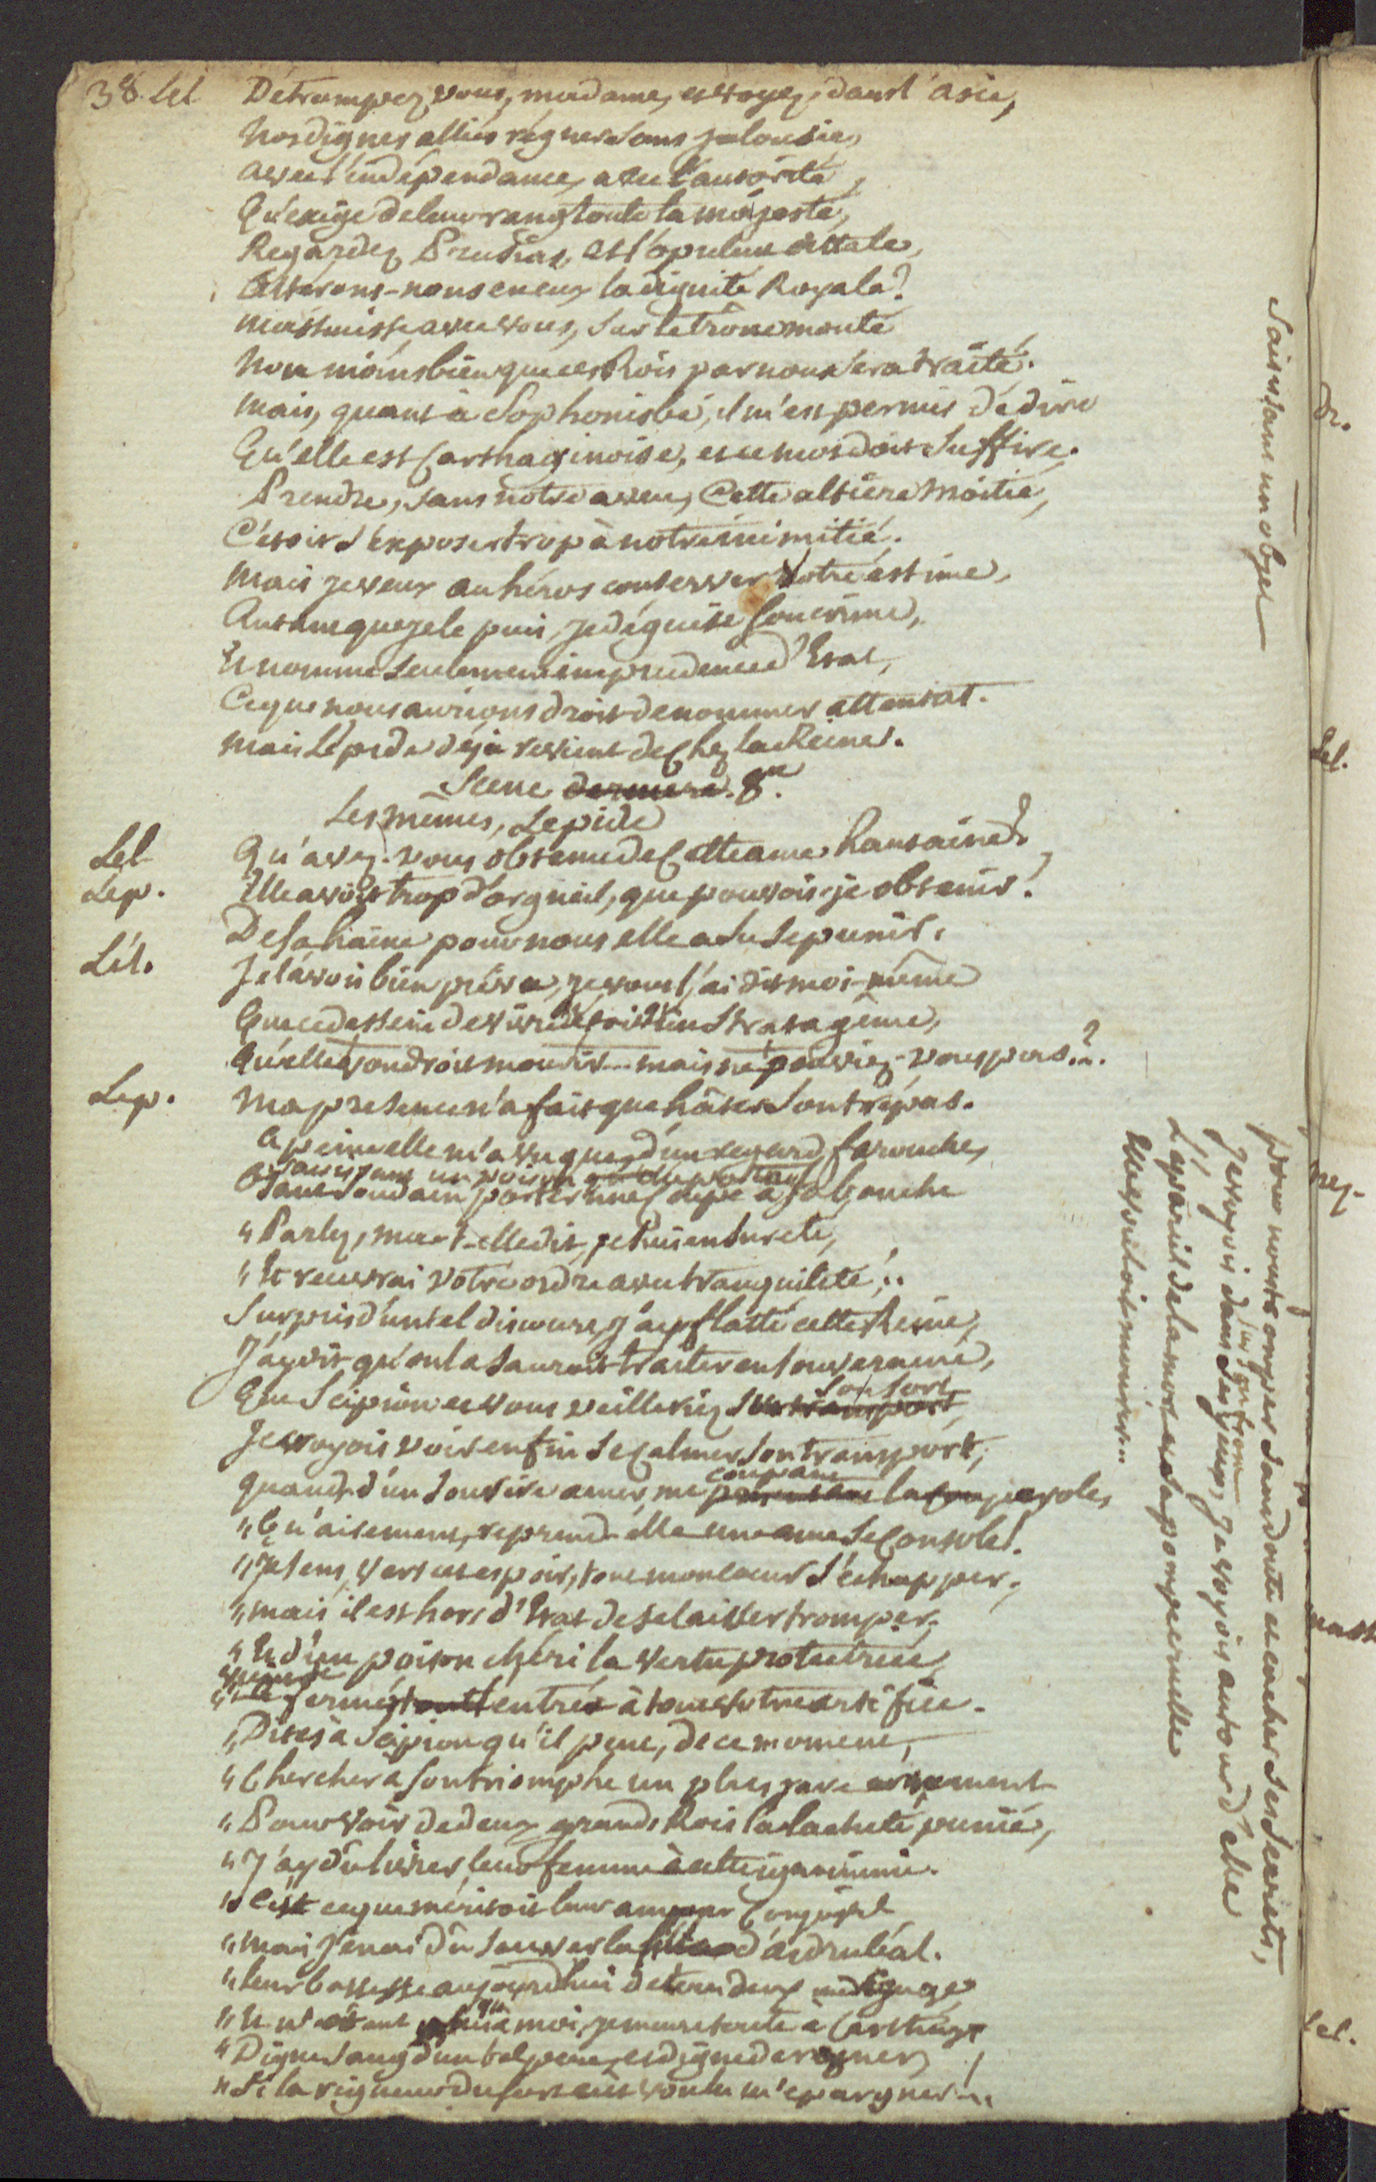 38. Lel Détrompez vous, madame, et voyez, dans l'asie,
Nos dignes alliés régner sans jalousie,
avec l'indépendance, avec l'autorité,
Qu'exige de leur rang toute la majesté,
Regardez Prusias, et l'opulent Attale,
Altérons-nous en eux la dignité Royale?
Massinisse avec vous, sur le trône monté
Non moins bien que ces Rois par nous sera traité.
mais, quant à Sophonisbe, il m'est permis de dire
Qu'elle est Carthaginoise, et ce mot doit suffire.
Prendre, sans notre aveu, Cette altiere moitié,
C'étoit s'exposer trop à notre inimitié.
Mais je veux au héros conserver notre estime,
Autant que je le puis, je déguise son crime,
Et nomme seulement imprudence d'Etat,
Ce que nous aurions droit de nommer attentat.
Mais Lépide déjà revient de Chez la Reine.
Scene derniere. 8e.
Les mêmes, Lepide
Lel Qu'avez-vous obtenu de Cette ame hautaine?
Lep. Elle avoit trop d'orgueil, que pouvois-je obtenir?
De sa haine pour nous elle a su se punir.
Lél. Je l'avois bien prévu, je vous l'ai dit moi-même
Que ce dessein de vivre étoit un stratagême,
Qu'elle voudroit mourir... mais ne pouviez-vous pas..?
Lep. Ma presence n'a fait que hâter son trépas.
A peine elle m'a vu que, d'un regard farouche,
Saisissant un poison
soudain porter une Coupe à sa bouche
"Parlez, m'a-t-elle dit, je suis en sureté,
"Et recevrai votre ordre avec tranquilité!..
Surpris d'un tel discours, j'ay flatté cette Reine,
J'ay dit qu'on la sauroit traiter en souveraine,
Que Scipion et vous veilleriez sur son sort
Je croyois voir enfin se Calmer son transport,
quand, d'un sourire amer, me coupant la parole,
"Qu'aisement, reprend-elle une ame se Console!
"Je sens, vers cet espoir, tout mon coeur s'échapper,
"mais il est hors d'Etat de se laisser tromper,
"Et d'un poison chéri la vertu protectrice
"fermé l'entrée à tout votre artifice.
"Dites à Scipion qu'il peut, de ce moment,
"Chercher à son triomphe un plus rare ornement
"Pour voir de deux grands Rois la lacheté punie,
"J'ay dû livrer leur femme à cette ignominie.
"C'est ce que méritoit leur amour Conjugal
"mais j'en ai dû sauver la fille d'Asdrubal.
"leur bassesse aujourd'hui de tous deux me dégage
"Et n'étant qu'à moi, je meurs toute à Carthage
"Digne sang d'un tel pere, et digne de regner,
"Si la rigueur du sort eût voulu m'epargner!..
Saisissant un objet
pour nous tromper sans doute et cacher ses secrets,
Je voyois dans ses yeux, je voyois autour d'elle
sur son front
L'appareil de la mort et sa pompe cruelle
Elle vouloit mourir...
Lel.
Lel.